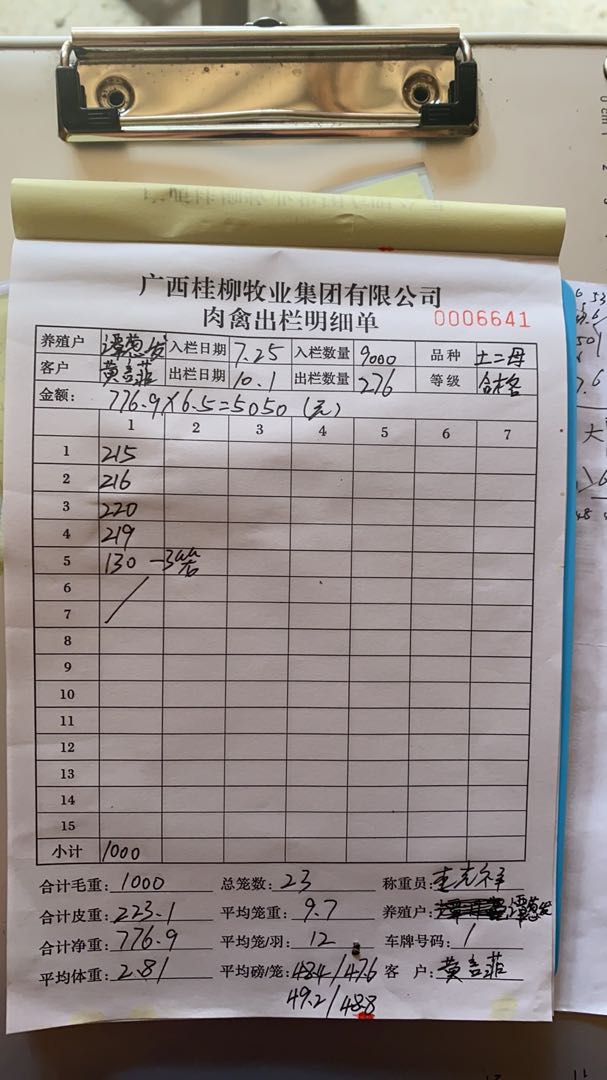 广西桂柳牧业集团有限公司
肉禽出栏明细单 0006641
养殖户 谭葱发 入栏日期 7.25 入栏数量 9000 品种 土二母
客户 黄言菲 出栏日期 10.1 出栏数量 276 等级 合格
金额: 776.9×6.5=5050(元)
1 2 3 4 5 6 7
1 215
2 216
3 220
4 219
5 130 -3笼
6
7
8
9
10
11
12
13
14
15
小计 1000
合计毛重: 1000 总笼数: 23 称重员:
合计皮重: 223.1 平均笼重: 9.7 养殖户: 谭葱发
合计净重: 776.9 平均笼/羽: 12 车牌号码: 1
平均体重: 2.81 平均磅/笼: 48.4/47.6 客 户: 黄言菲
49.2/48.8